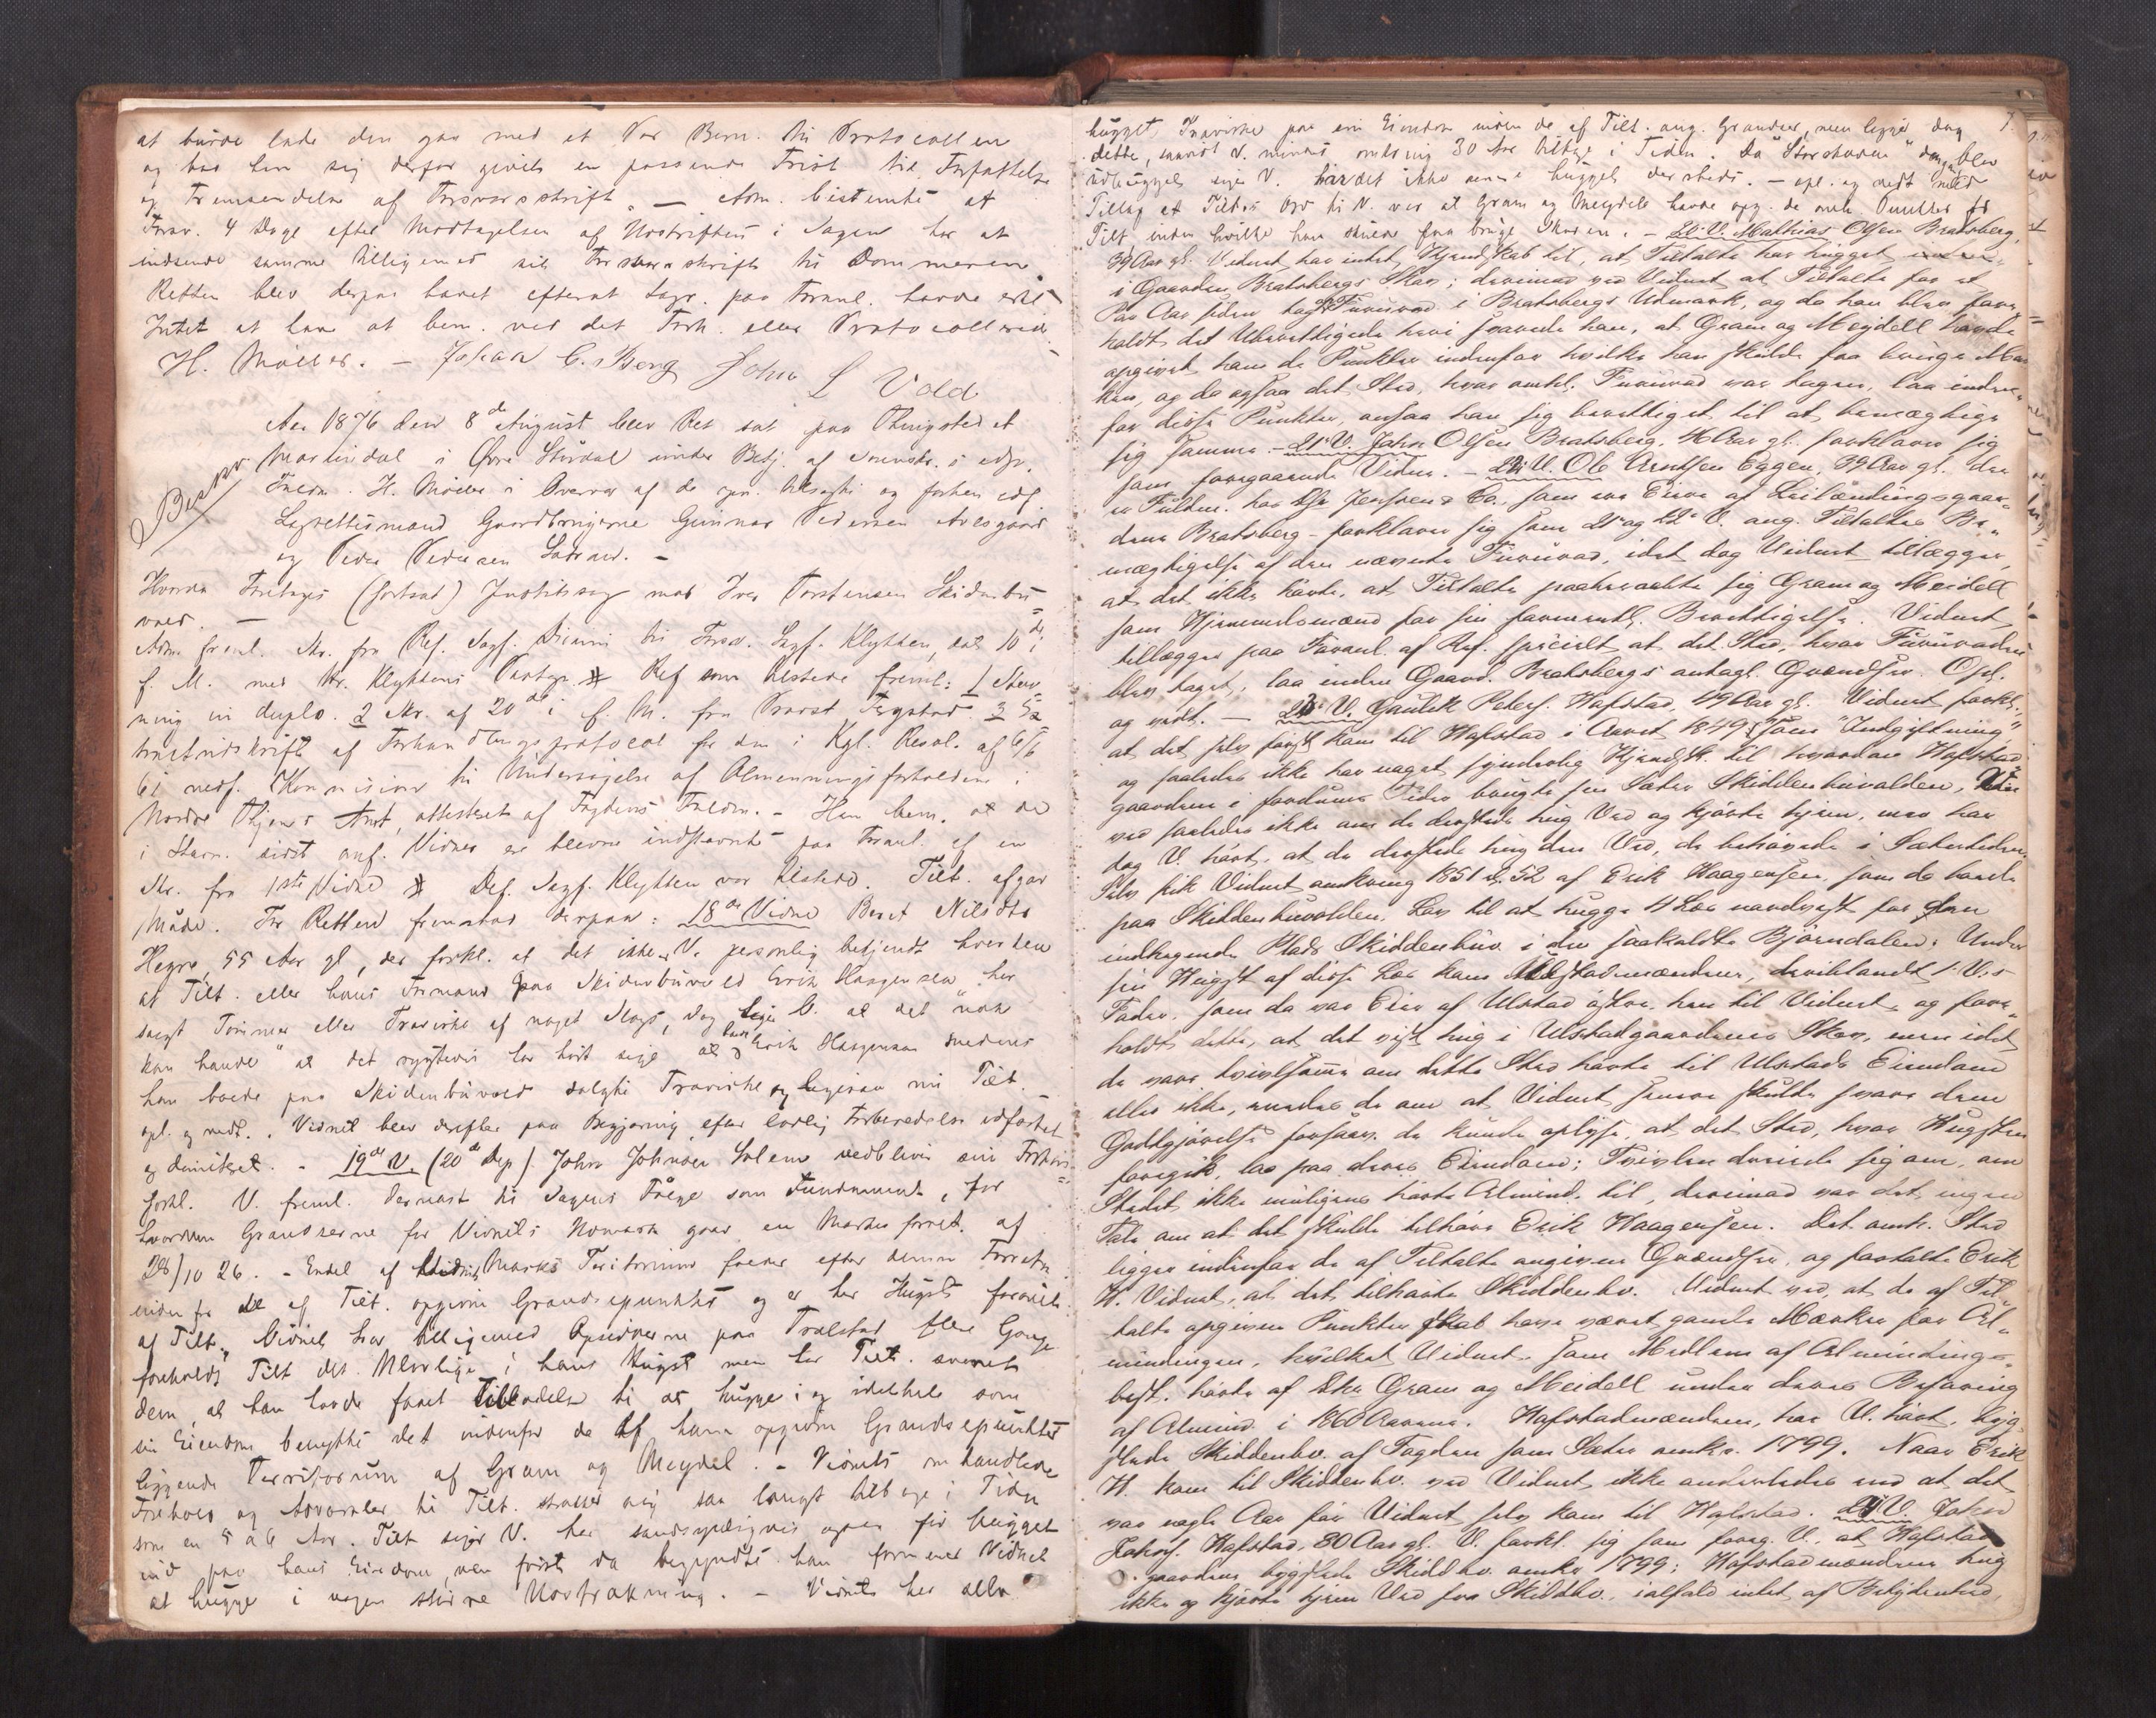 at burde lade den gaa med et Par Bem. til Protocollen
og bad han sig derfor givet en passende Frist til Forfattelse
og Fremsendelse af Forsvarsskrift. — Adm. bestemte at
Forsv. 4 Dage efter Modtagelsen af Udskriften i Sagen har at
indsende samme tilligemed sit Forsvarsskrift til Dommeren.
Retten blev derpaa hævet efterat Lagr. paa Foranl. havde erkl.
Intet at have at bem. ved det Forh. eller Protocollerede
H. Möller. — Johan C. Berg John L Vold
Aar 1876 den 8de August blev Ret sat paa Thingstedet
Mælindal i Øvre Stördal under Betj. af Sorenskr. s edsv.
Fuldm. H. Möller i Overvær af de opn. tilsagte og forhen edf.
Lagrettesmænd Gaardbrugerne Gunnar Pedersen Avlsgaard
og Peder Pedersen
Hvorda Foretoges (fortsat) Justitssag mod Iver Torstensen Skidenhu
vold. —
Adm freml. Skr. fra Ref. Sagf. til Forsv. Sagf. Klykken, dat 10de
f. M. med Hr. Klykkens Paategn. # Ref som tilstede freml: 1 Stev
ning in duplo. 2 Skr. af 20de i f. M. fra Provst 3
af Forhandlingsprotocol for den i Kgl. Resol. af 6/6
61 neds. Kommission til Undersögelse af Almenningsforholdene i
Nordre Thjems Amt, attesteret af Fogdens Fuldm. — Han bem. at de
i Stevn. sidst anf. Vidner er blevne indstevnte paa Foranl. af en
Skr. fra 1ste Vidne # Def. Sagf. Klykken var tilstede. Tilt. afgav
Möde. For Retten fremstod derpaa: 18de Vidne Beret Nilsdtr
Hegre, 55 Aar gl, der forkl. at det ikke er V. personlig bekjendt hverken
at Tilt. eller hans Formand paa Skidenhuvold Erik Haagensen har
solgt Tömmer eller Trævirke af noget Slags, dog siger V. at det "nok
kan hænde" at det rygtevis har hört sige at baade Erik Haagensen medens
han boede paa Skidenhuvold solgte Trævirke og ligesaa nu Tilt.
opl. og vedt. Vidnet blev derefter paa Begjæring efter lovlig Forberedelse edfæstet
og dimitteret. — 19de V. (20de Dep) John Johnsen Solem vedbliver sin Forkla
forkl. V. freml. dernæst til Sagens Fölge som Fundament, for
hvordan Grændserne for Vidnets Nomark gaar en Markes forret. af
28/10 26. — Endel af Marks Teritorium falder efter denne Forretn.
inden for de af Tilt. opgivne Grændsepunkter og er her Hugst forövet
af Tilt. Vidnet har tilligemed Opsidderne paa flere Gange
foreholdt Tilt det Ulovlige i hans Hugst men har Tilt. svaret
dem, at han havde faaet Tilladelse til at hugge i og idethele som
sin Eiendom benytte det indenfor de af ham opgivne Grændsepunkter
liggende Territorium af Gram og Meydel. — Vidnets omhandlede
Forhold og Advarsler til Tilt. strækker sig saa langt tilbage i Tiden
som en 5 a 6 Aar. Tilt siger V. har sandsynligvis ogsaa för hugget
ind paa hans Eiendom, men först da begyndte han formener Vidnet
at hugge i nogen större Udstrækning. — Vidnet har aldrig
hugget Trævirke paa sin Eiendom inden de af Tilt. ang. Grændser, men ligger dog
dette, saavidt V. mindes omkring 30 Aar tilbage i Tiden. Da "Storskoven" dengang blev
udhugget siger V. har det ikke senere hugget dersteds. — Opl. og vedt med
Tillæg at Tilt.s Ord til V. var at Gram og Meydell havde opg. de omh. Punkter for
Tilt. inden hvilke han skulde faa bruge Skoven. — 20de V. Mathias Olsen Bratsberg,
39 Aar gl. Vidnet har intet Kjendskab til, at Tiltalte har hugget
i Gaarden Bratsbergs Skov; derimod ved Vidnet at Tiltalte for et
Par Aar siden tog Furuved i Bratsbergs Udmark, og da han blev fore„
holdt det Uberettigede heri svarede han, at Gram og Meydell havde
opgivet ham de Punkter indenfor hvilke han skulde faa bruge Mar
ken, og da ogsaa det Sted, hvor omhl. Furuved var tagen, laa inden„
for disse Punkter, ansaa han sig berettiget til at bemægtige
sig samme. — 21de V. John Olsen Bratsberg, 46 Aar gl. forklarer sig
som foregaaende Vidne. — 22de V. Ole Arntsen Eggen, 39 Aar gl. der
er Fuldm. hos Hr Jenssen & Co., som er Eiere af Leilændingsgaar„
dene Bratsberg — forklarer sig som 20de og 21de V. ang. Tiltaltes Be„
mægtigelse af den nævnte Furuved, idet dog Vidnet tillægger,
at det ikke hörte, at Tiltalte paaberaabte sig Gram og Meidell
som Hjemmelsmænd for sin formentl. Berettigelse. Vidnet
tillægger paa Foranl. af Ref. specielt at det Sted, hvor Furuveden
blev taget, laa inden Gaard. Bratsbergs antagl. Grændser. Opl.
og vedt. — 23de V. Gunlik Peders. Hofstad, 49 Aar gl. Vidnet forkl.,
at det selv först kom til Hofstad i Aaret 1849 som "Indgiftning",
og saaledes ikke har noget synderlig Kjendsk. til hvordan Hofstad
gaardene i fordums Tider brugte sin Sæter Skiddenhuvolden,
ved saaledes ikke om de dersteds hug Ved og kjörte hjem, men har
dog V. hört, at de dersteds hug den Ved, de behövede i Sætertiden.
Selv fik Vidnet omkring 1851 a 52 af Erik Haagensen, som da havde
paa Skiddenhuvolden, Lov til at hugge 4 Læs nordvest for den
indhegnede Plads Skiddenhuv. i den saakaldte Björndalen: Under
sin Hugst af disse Læs kom Ulstadmændene, deriblandt 1. V.s
Fader, som da var Eier af Ulstad östre, hen til Vidnet og fore„
holdt dette, at det vist hug i Ulstadgaardenes Skov, men idet
de vare tvivlsomme om dette Sted hörte til Ulstads Eiendom
eller ikke, endte de om at Vidnet senere skulde svare dem
Godtgjörelse forsaav. de kunde oplyse, at det Sted, hvor Hugsten
foregik, laa paa deres Eiendom; Tvivlen dreiede sig om, om
Stedet ikke muligens hörte Almind. til, derimod var det ingen
Tale om at det skulde tilhöre Erik Haagensen. Det omh. Sted
ligger indenfor de af Tiltalte angivne Grændser, og fortalte Erik
H. Vidnet, at det tilhörte Skiddenhv. Vidnet ved, at de af Til„
talte opgivne Punkter skal have været gamle Mærker for Al„
mindingen, hvilket Vidnet som Medlem af Alminding„
best. hörte af Hrr Gram og Meidell under deres Befaring
af Almind. i 1860 Aarene. Hofstadmændene, har V. hört, byg„
slede Skiddenhv. af Fogden som Sæter omkr. 1799. Naar Erik
H. kom til Skiddenhv. ved Vidnet ikke anderledes end at det
var nogle Aar för Vidnet selv kom til Hofstad. 24de V. Johs
Johns. Hofstad, 80 Aar gl. V. forkl. sig som foreg. V., at Hofstad
gaardene bygslede Skiddhv. omkr 1799; Hofstadmændene hug
ikke og kjörte hjem Ved fra Skiddhv., ialfald intet af Betydenhed,